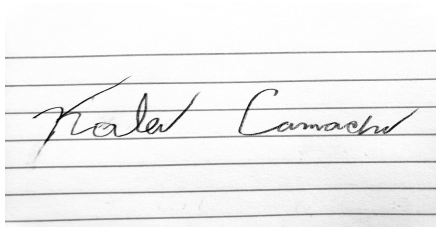 Kaler Camacho